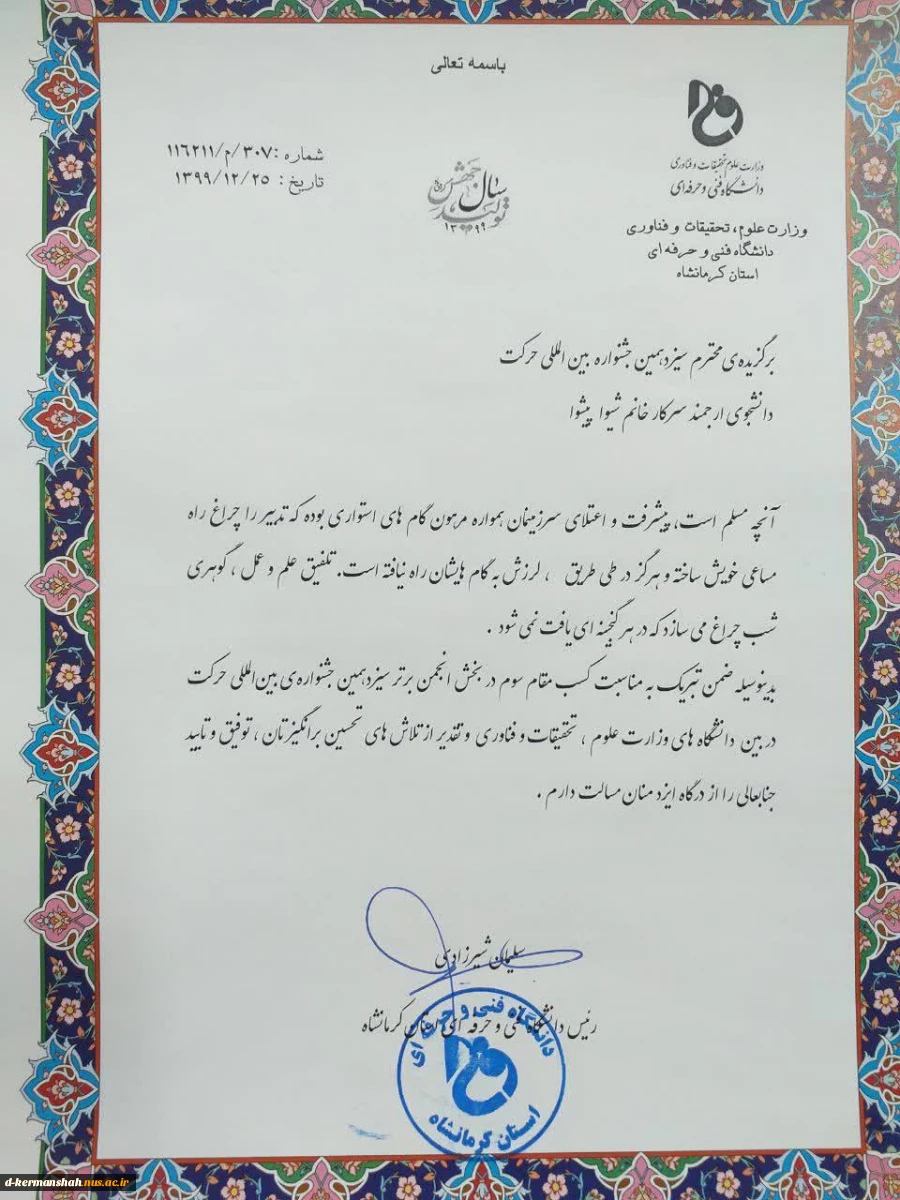 باسمه تعالی
وزارت علوم تحقیقات و فناوری
دانشگاه فنی و حرفه‌ای
شماره : ۳۰۷/م/۱۱۶۲۱۱
تاریخ : ۱۳۹۹/۱۲/۲۵
سال جهش تولید
۱۳۹۹
وزارت علوم، تحقیقات و فناوری
دانشگاه فنی و حرفه ای
استان کرمانشاه
برگزیده‌ی محترم سیزدهمین جشنواره بین المللی حرکت
دانشجوی ارجمند سرکار خانم شیوا پیشوا
آنچه مسلم است، پیشرفت و اعتلای سرزمینمان همواره مرهون گام های استواری بوده که تدبیر را چراغ راه
مساعی خویش ساخته و هرگز در طی طریق ، لرزش به گام هایشان راه نیافته است. تلفیق علم و عمل ، گوهری
شب چراغ می سازد که در هر گنجینه ای یافت نمی شود .
بدینوسیله ضمن تبریک به مناسبت کسب مقام سوم در بخش انجمن برتر سیزدهمین جشنواره‌ی بین‌المللی حرکت
در بین دانشگاه های وزارت علوم ، تحقیقات و فناوری و تقدیر از تلاش های تحسین برانگیزتان ، توفیق و تایید
جنابعالی را از درگاه ایزد منان مسالت دارم .
سلیمان شیرزادی
رئیس دانشگاه فنی و حرفه ای استان کرمانشاه
دانشگاه فنی و حرفه ای
استان کرمانشاه
d-kermanshah.nus.ac.ir